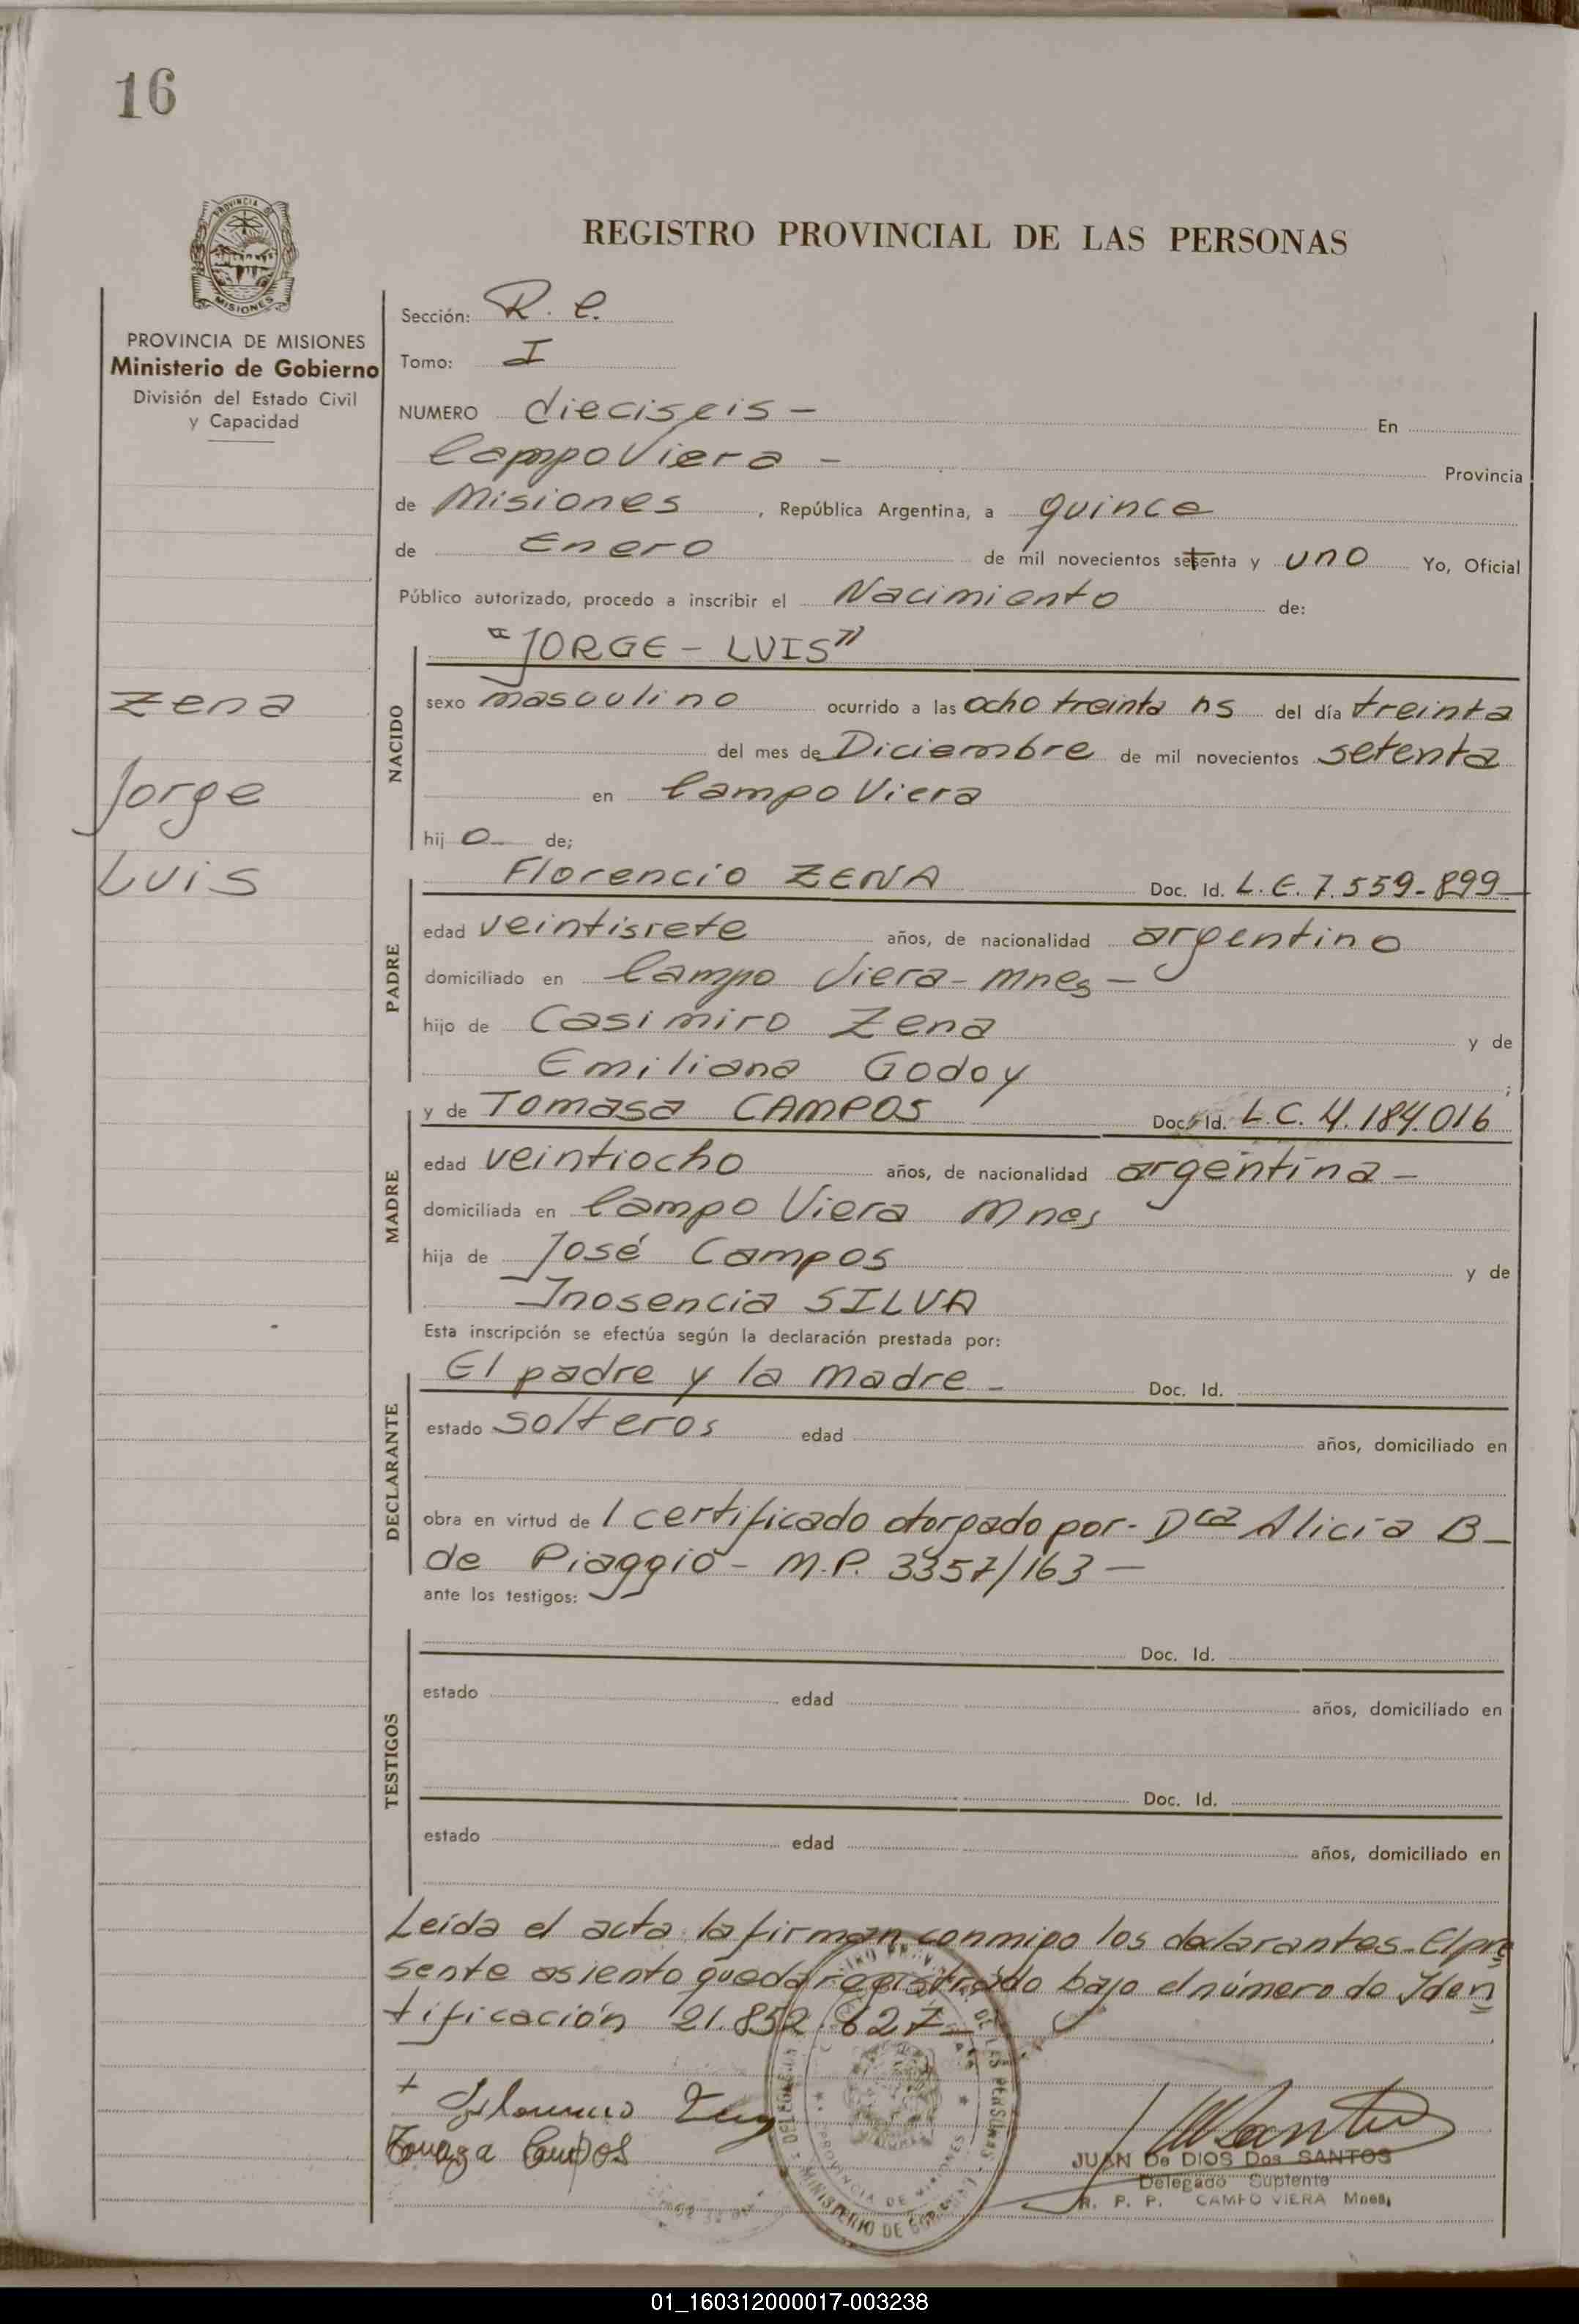 16
PROVINCIA DE
MISIONES
REGISTRO PROVINCIAL DE LAS PERSONAS
PROVINCIA DE MISIONES
Ministerio de Gobierno
División del Estado Civil
y Capacidad
Zena
Jorge
Luis
Sección: R. C.
Tomo: I
NUMERO dieciseis - En
Campo Viera - Provincia
de Misiones , República Argentina, a quince
de Enero de mil novecientos setenta y uno Yo, Oficial
Público autorizado, procedo a inscribir el Nacimiento de:
NACIDO
"JORGE - LUIS"
sexo masculino ocurrido a las ocho treinta hs del día treinta
del mes de Diciembre de mil novecientos setenta
en Campo Viera
hij o de;
PADRE
Florencio ZENA Doc. Id. L.E. 7.559-899
edad veintisiete años, de nacionalidad argentino
domiciliado en Campo Viera - Mnes -
hijo de Casimiro Zena y de
Emiliana Godoy ;
MADRE
y de Tomasa CAMPOS Doc. Id. L.C. 4.184.016
edad veintiocho años, de nacionalidad argentina -
domiciliada en Campo Viera Mnes
hija de José Campos y de
Inosencia SILVA
Esta inscripción se efectúa según la declaración prestada por:
DECLARANTE
El padre y la madre - Doc. Id.
estado solteros edad años, domiciliado en
obra en virtud de 1 certificado otorgado por - Dra Alicia B -
de Piaggio - M.P. 3357/163 -
ante los testigos:
TESTIGOS
Doc. Id.
estado edad años, domiciliado en
Doc. Id.
estado edad años, domiciliado en
Leída el acta la firman conmigo los declarantes - El pre
sente asiento queda registrado bajo el número de Iden
tificación 21.852.627 -
+ Florencio Zena
Tomasa Campos
PROVINCIA DE MISIONES
MINISTERIO DE
JUAN De DIOS Dos SANTOS
Delegado Suplente
R. P. P. CAMPO VIERA Mnes,
01_160312000017-003238